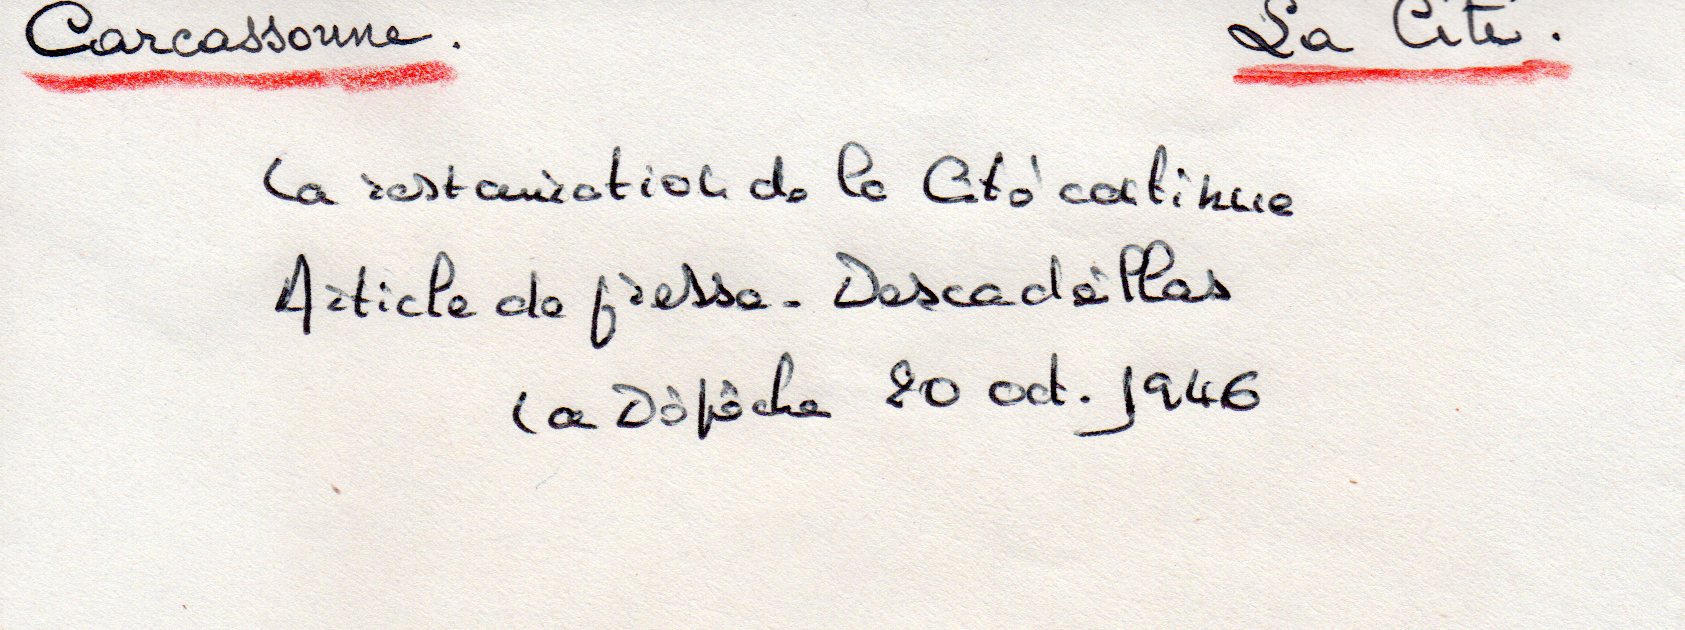 Carcassonne. La Cité.
La restauration de la Cité continue
Article de presse - Descadeillas
La Dépêche 20 oct. 1946